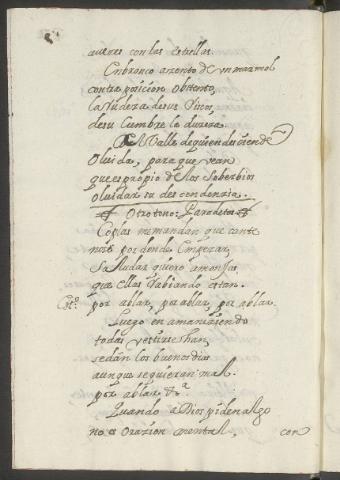 aueres con las estrellas.
En bronco assento de un marmol
contraposicion obstento,
la rudeza de sus
de su Cumbre la dureza.
Al Valle de quien desciende
Oluida, para que vean
que es propio de los Soberbios
oluidar su descendenzia.
Otro tono:
Coplas me mandan que cante
por donde Empezar,
Saludar quiero a monjas
que ellas rabiando estan.
Cor.º por ablar, por ablar, por ablar.
Luego en amaneziendo
todas vestirse han,
se dan los buenos dias
aunque se quieran mal.
por ablar &ª
Quando a Dios piden algo
no es orazion mental,
con